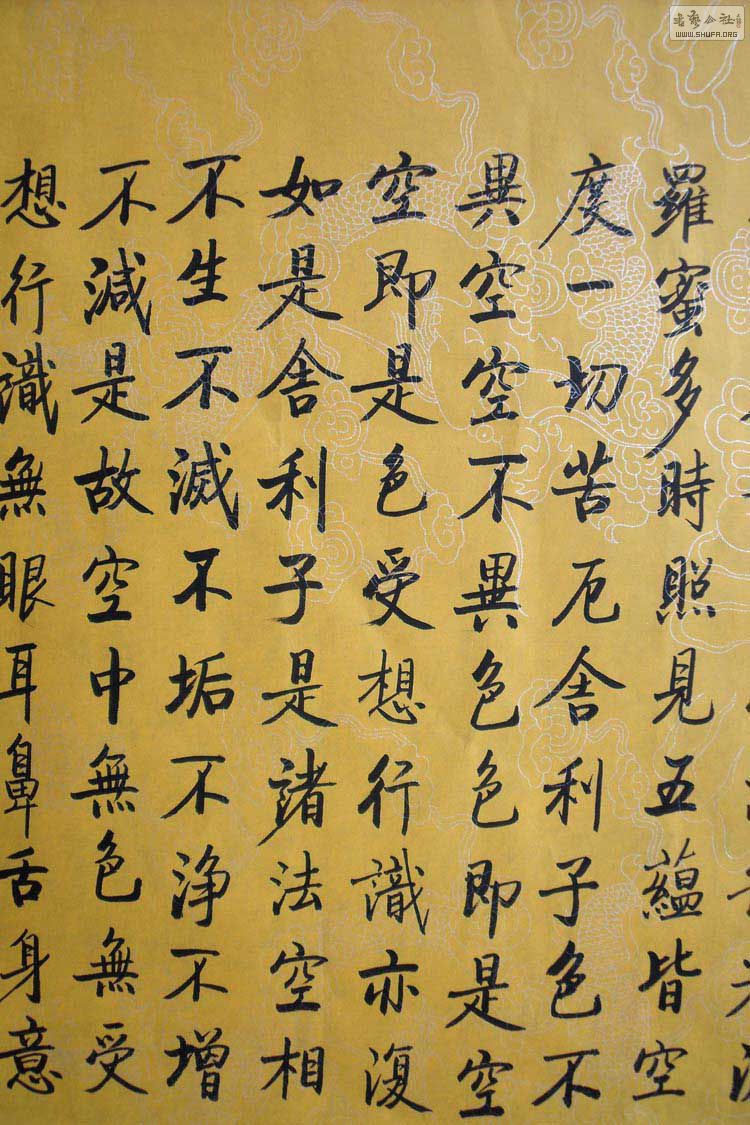 羅蜜多時照見五蘊皆空
度一切苦厄舍利子色不
異空空不異色色即是空
空即是色受想行識亦復
如是舍利子是諸法空相
不生不滅不垢不淨不增
不減是故空中無色無受
想行識無眼耳鼻舌身意
WWW.SHUFA.ORG